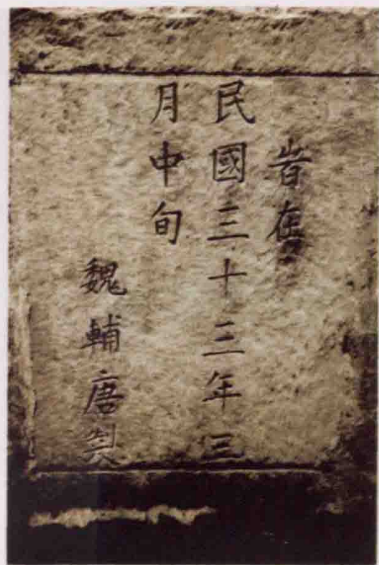 旹在
民國三十三年三
月中旬
魏輔唐製